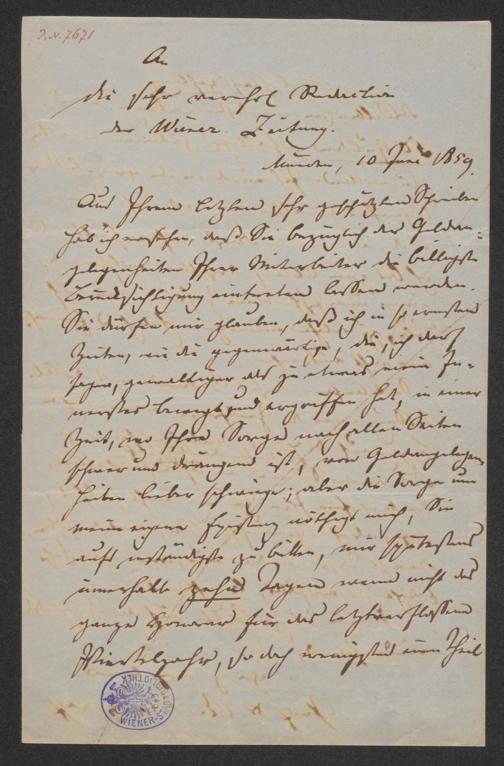 J.N. 7671
An
die sehr verehrl Redaction
der Wiener Zeitung.
München, 10 Juni 1859.
Aus Ihrem letzten sehr geschätzten Schreiben
hab ich ersehen, daß Sie bezüglich der Geldan-
gelegenheiten Ihrer Mitarbeiter die billigste
Berücksichtigung eintreten lassen werden.
Sie dürfen mir glauben, daß ich in so ernsten
Zeiten, wie die gegenwärtige, die, ich darf
sagen, gewaltiger als je etwas mein In-
nerstes bewegt und ergriffen hat, in einer
Zeit, wo Ihre Sorge nach allen Seiten
schwer und drängend ist, von Geldangelegen
heiten lieber schwiege; aber die Sorge um
meine eigene Existenz nöthigt mich, Sie
aufs inständigste zu bitten, mir spätestens
innerhalb zehn Tagen wenn nicht das
ganze Honorar für das letztverflossene
Vierteljahr, so doch wenigstens einen Theil
WIENER STADTBIBLIOTHEK